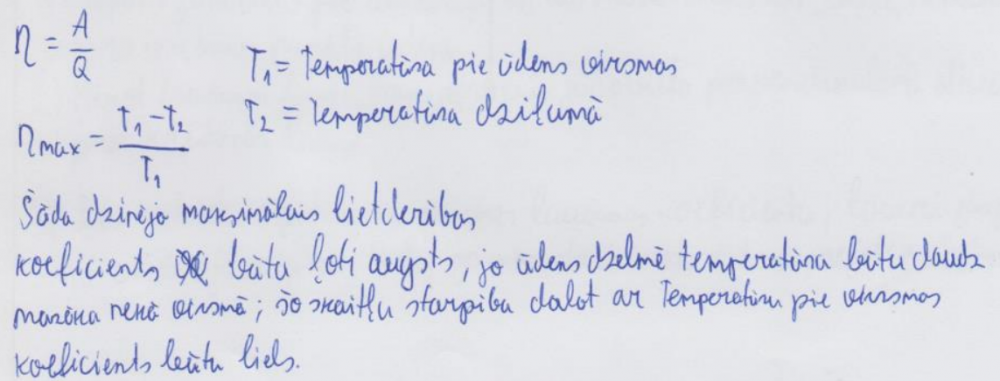 η = A/Q
T₁ = Temperatūra pie ūdens virsmas
T₂ = Temperatūra dziļumā
ηmax = T₁-T₂/T₁
Šāda dzinēja maksimālais lietderības
koeficients būtu ļoti augsts, jo ūdens dzelmē temperatūra būtu daudz
mazāka nekā virsmā; šo skaitļu starpību dalot ar Temperatūru pie virsmas
koeficients būtu liels.